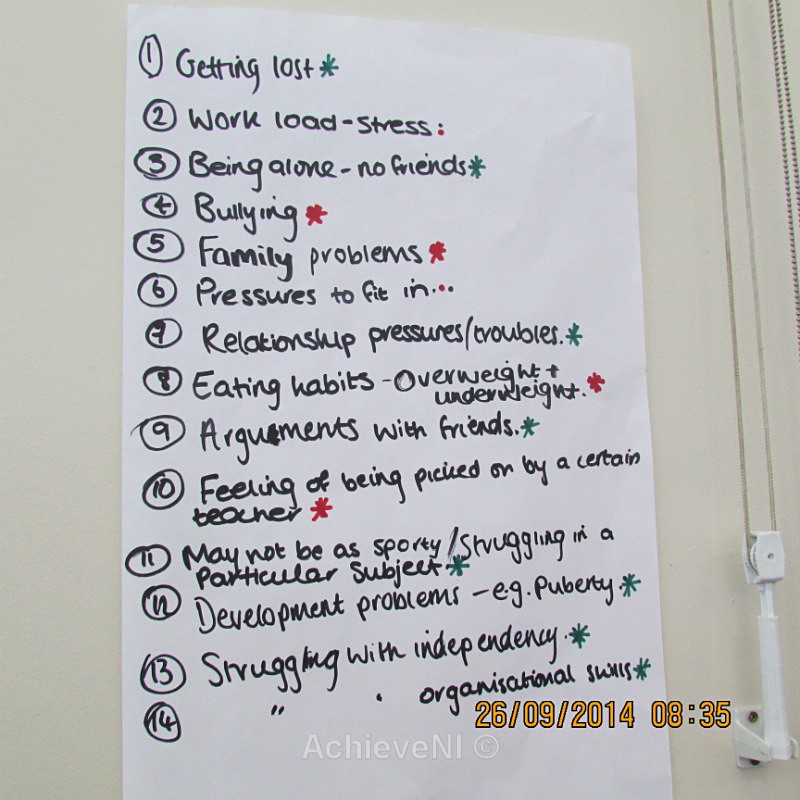 1 Getting lost *
2 Work load - stress :
3 Being alone - no friends *
4 Bullying *
5 Family problems *
6 Pressures to fit in...
7 Relationship pressures/troubles. *
8 Eating habits - Overweight +
underweight. *
9 Arguments with friends. *
10 Feeling of being picked on by a certain
teacher *
11 May not be as sporty / Struggling in a
Particular Subject *
12 Development problems - eg. Puberty. *
13 Struggling with independency. *
14 " . organisational skills *
26/09/2014 08:35
AchieveNI ©